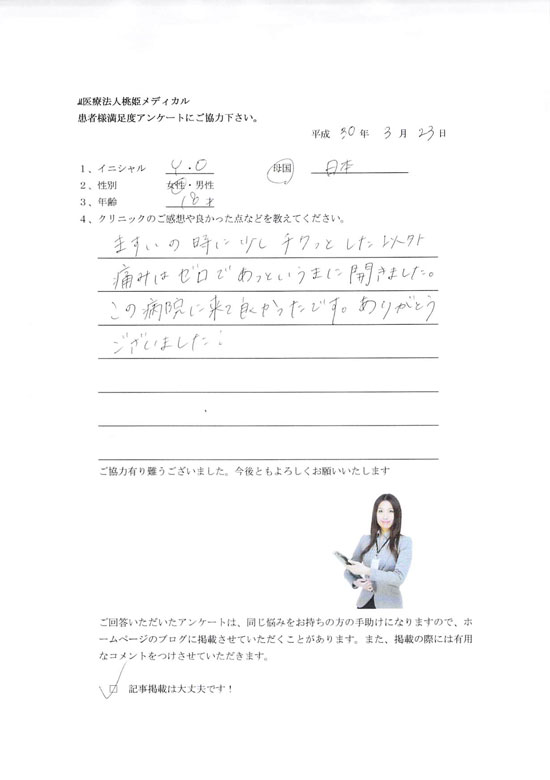 医療法人桃姫メディカル
患者様満足度アンケートにご協力下さい。
平成 30 年 3 月 23 日
1、イニシャル Y.O 母国 日本
2、性別 女性・男性
3、年齢 18才
4、クリニックのご感想や良かった点などを教えてください。
ますいの時に少しチクッとした以外
痛みはゼロであっというまに開きました。
この病院に来て良かったです。ありがとう
ございました!
ご協力有り難うございました。今後ともよろしくお願いいたします
ご回答いただいたアンケートは、同じ悩みをお持ちの方の手助けになりますので、ホ
ームページのブログに掲載させていただくことがあります。また、掲載の際には有用
なコメントをつけさせていただきます。
☑ 記事掲載は大丈夫です!